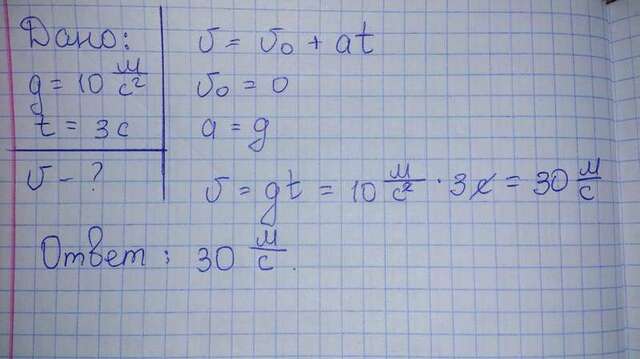 Дано:
g = 10 м/с²
t = 3 с
v - ?
v = v₀ + at
v₀ = 0
a = g
v = gt = 10 м/с² · 3с = 30 м/с
Ответ: 30 м/с.